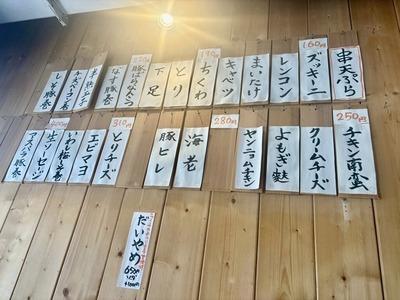 串天ぷら
160円
ズッキーニ
レンコン
まいたけ
キャベツ
190円
ちくわ
とり
下足
220円
豚ばらなんこつ
なす豚巻
しそ豚巻
250円
チキン南蛮
クリームチーズ
よもぎ麩
ヤンニョムチキン
280円
海老
豚ヒレ
310円
とりチーズ
エビマヨ
いわし梅しそ巻
400円
生ソーセージ
アスパラ豚巻
だいやめ
650円
ソーダ
+100円